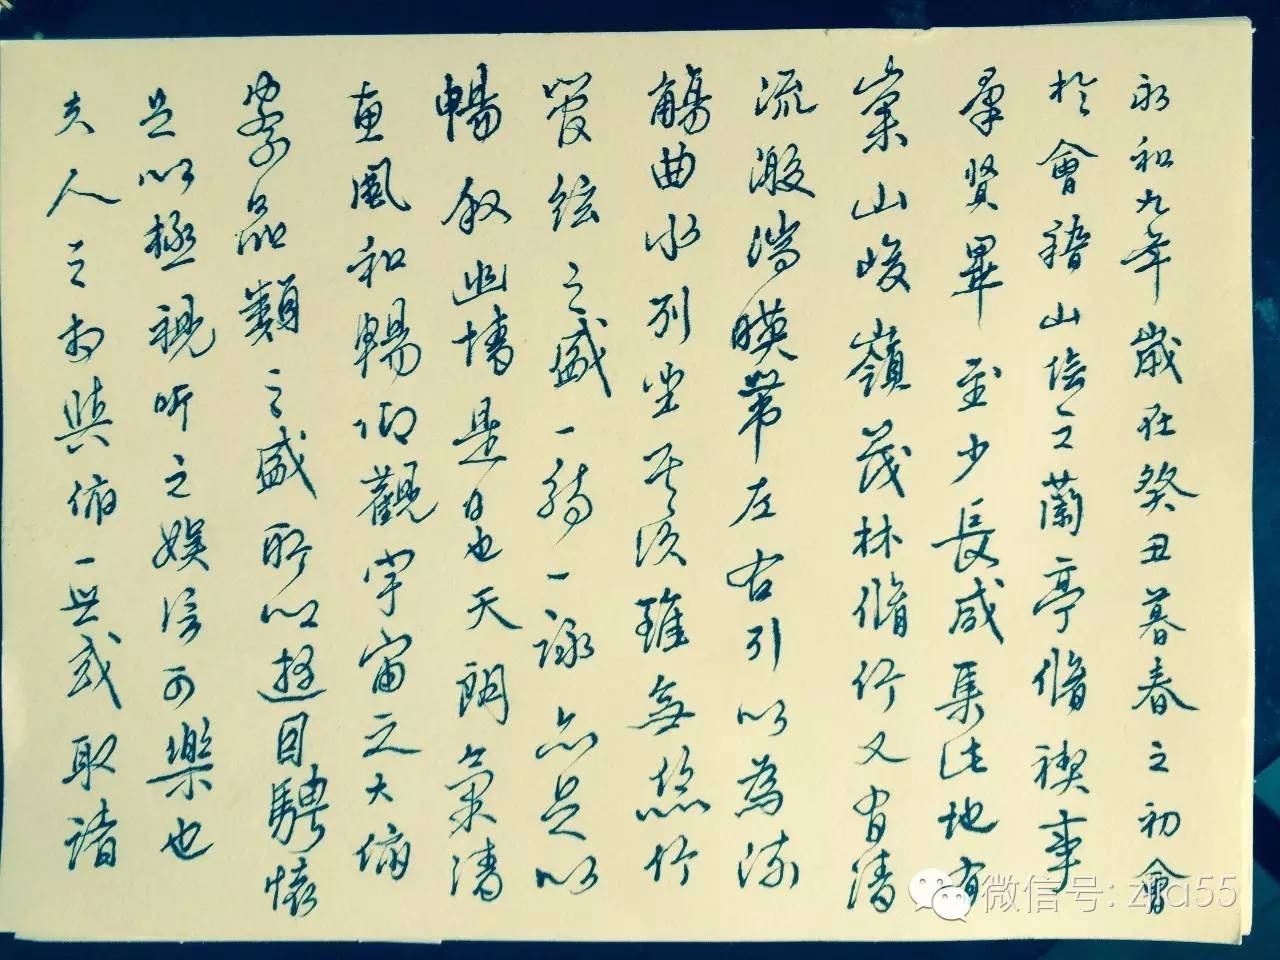 永和九年歲在癸丑暮春之初會
於會稽山陰之蘭亭脩禊事
羣賢畢至少長咸集此地有
崇山峻嶺茂林脩竹又有清
流激湍暎帶左右引以為流
觴曲水列坐其次雖無絲竹
管絃之盛一觴一詠亦足以
暢叙幽情是日也天朗氣清
惠風和暢仰觀宇宙之大俯
察品類之盛所以遊目騁懷
足以極視听之娛信可樂也
夫人之相與俯一世或取諸
微信号: